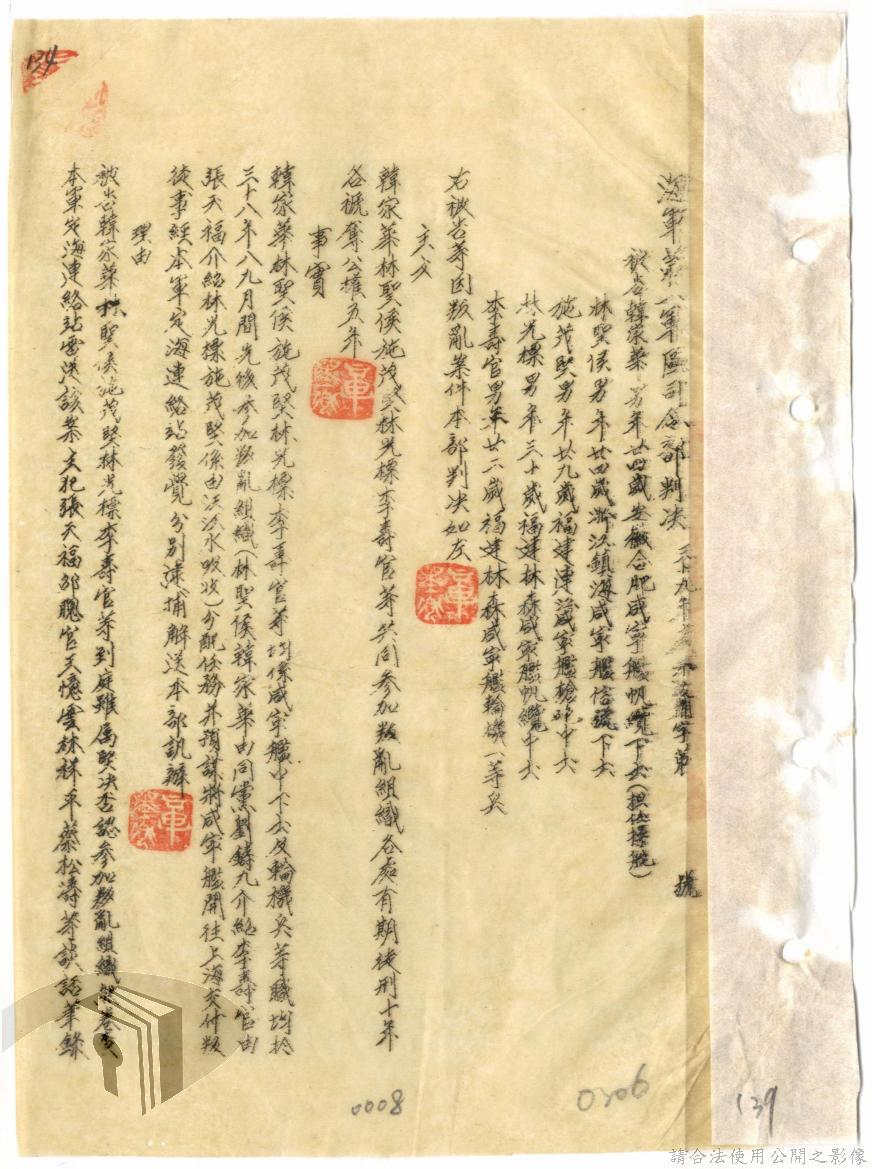 海軍第一軍區司令部判決
三十九年 字第 號
被告韓家華男年廿四歲安徽合肥咸寧艦帆纜下士(担任操舵)
林聖侯男年廿四歲浙江鎮海咸寧艦信號下士
施茂契男年廿九歲福建連江咸寧艦槍砲中士
林光標男年三十歲福建林森咸寧艦帆纜中士
李壽官男年廿六歲福建林森咸寧艦輪機一等兵
右被告等因叛亂案件本部判決如左
主文
韓家華林聖侯施茂契林光標李壽官等共同參加叛亂組織各處有期徒刑十年
各褫奪公權五年
事實
韓家華林聖侯施茂契林光標李壽官等均係咸寧艦中下士及輪機兵等職均於
三十八年八九月間先後參加叛亂組織(林聖侯韓家華由同黨劉鑄九介紹李壽官由
張天福介紹林光標施茂契係由汪汲水吸收)分配任務并預謀將咸寧艦開往上海交付叛
徒事經本軍定海連絡站發覺分別逮捕解送本部訊辦
理由
被告韓家華林聖侯施茂契林光標李壽官等到庭雖屬堅決否認參加叛亂組織 卷查
本軍定海連絡站電送該案主犯張天福邱魁官王憶雲林祥平蔡松濤等談話筆錄
134
0008
0206
139
請合法使用公開之影像